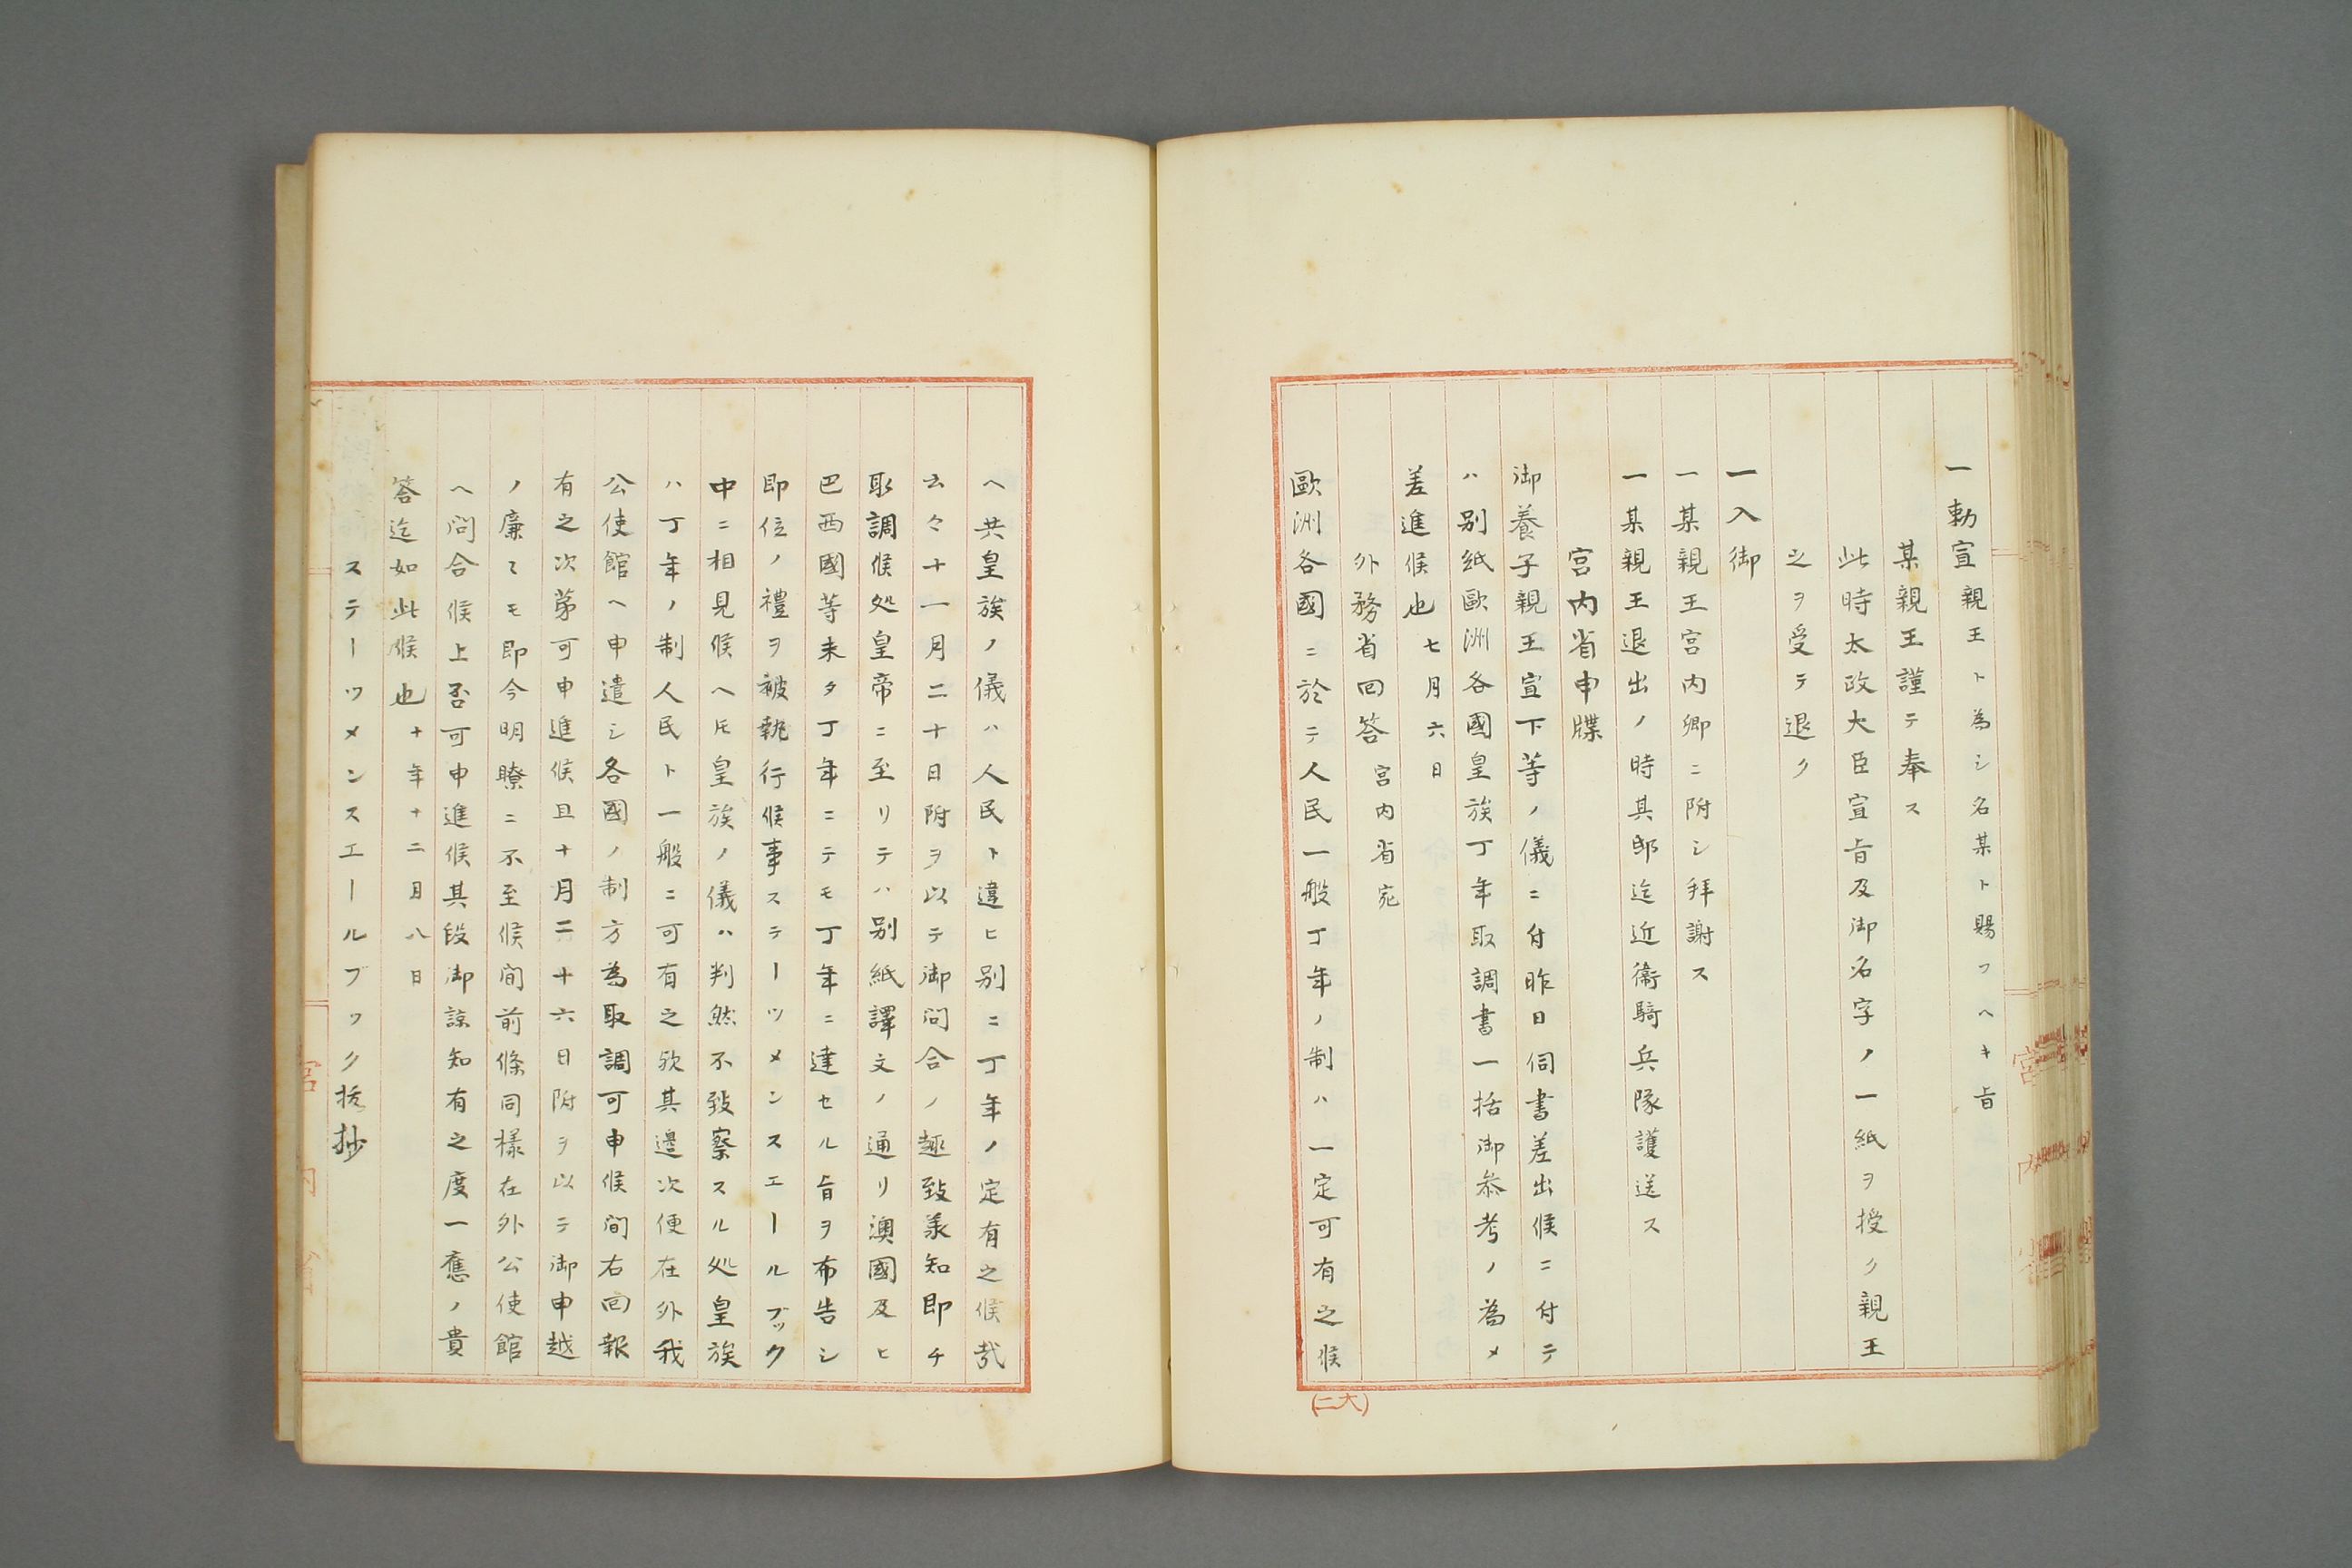 一勅宣親王ト為シ名某ト賜フヘキ旨
某親王謹テ奉ス
此時太政大臣宣旨及御名字ノ一紙ヲ授ク親王
之ヲ受テ退ク
一入御
一某親王宮内卿ニ附シ拜謝ス
一某親王退出ノ時其邸迄近衛騎兵隊護送ス
宮内省申牒
御養子親王宣下等ノ儀ニ付昨日伺書差出候ニ付テ
ハ別紙歐洲各國皇族丁年取調書一括御参考ノ為メ
差進候也 七月六日
外務省回答 宮内省宛
歐洲各國ニ於テ人民一般丁年ノ制ハ一定可有之候
(二大)
ヘ共皇族ノ儀ハ人民ト違ヒ別ニ丁年ノ定有之候哉
云々十一月二十日附ヲ以テ御問合ノ趣致羕知即チ
取調候処皇帝ニ至リテハ別紙譯文ノ通リ澳國及ヒ
巴西國等未タ丁年ニテモ丁年ニ達セル旨ヲ布告シ
即位ノ禮ヲ被執行候事ステーツメンスエールブック
中ニ相見候ヘ圧皇族ノ儀ハ判然不致察スル処皇族
ハ丁年ノ制人民ト一般ニ可有之歟其邊次便在外我
公使館ヘ申遣シ各國ノ制方為取調可申候間右回報
有之次第可申進候且十月二十六日附ヲ以テ御申越
ノ廉々モ即今明瞭ニ不至候間前條同様在外公使館
ヘ問合候上否可申進候其段御諒知有之度一應ノ貴
答迄如此候也 十年十二月八日
ステーツメンスエールブック抜抄
宮内省